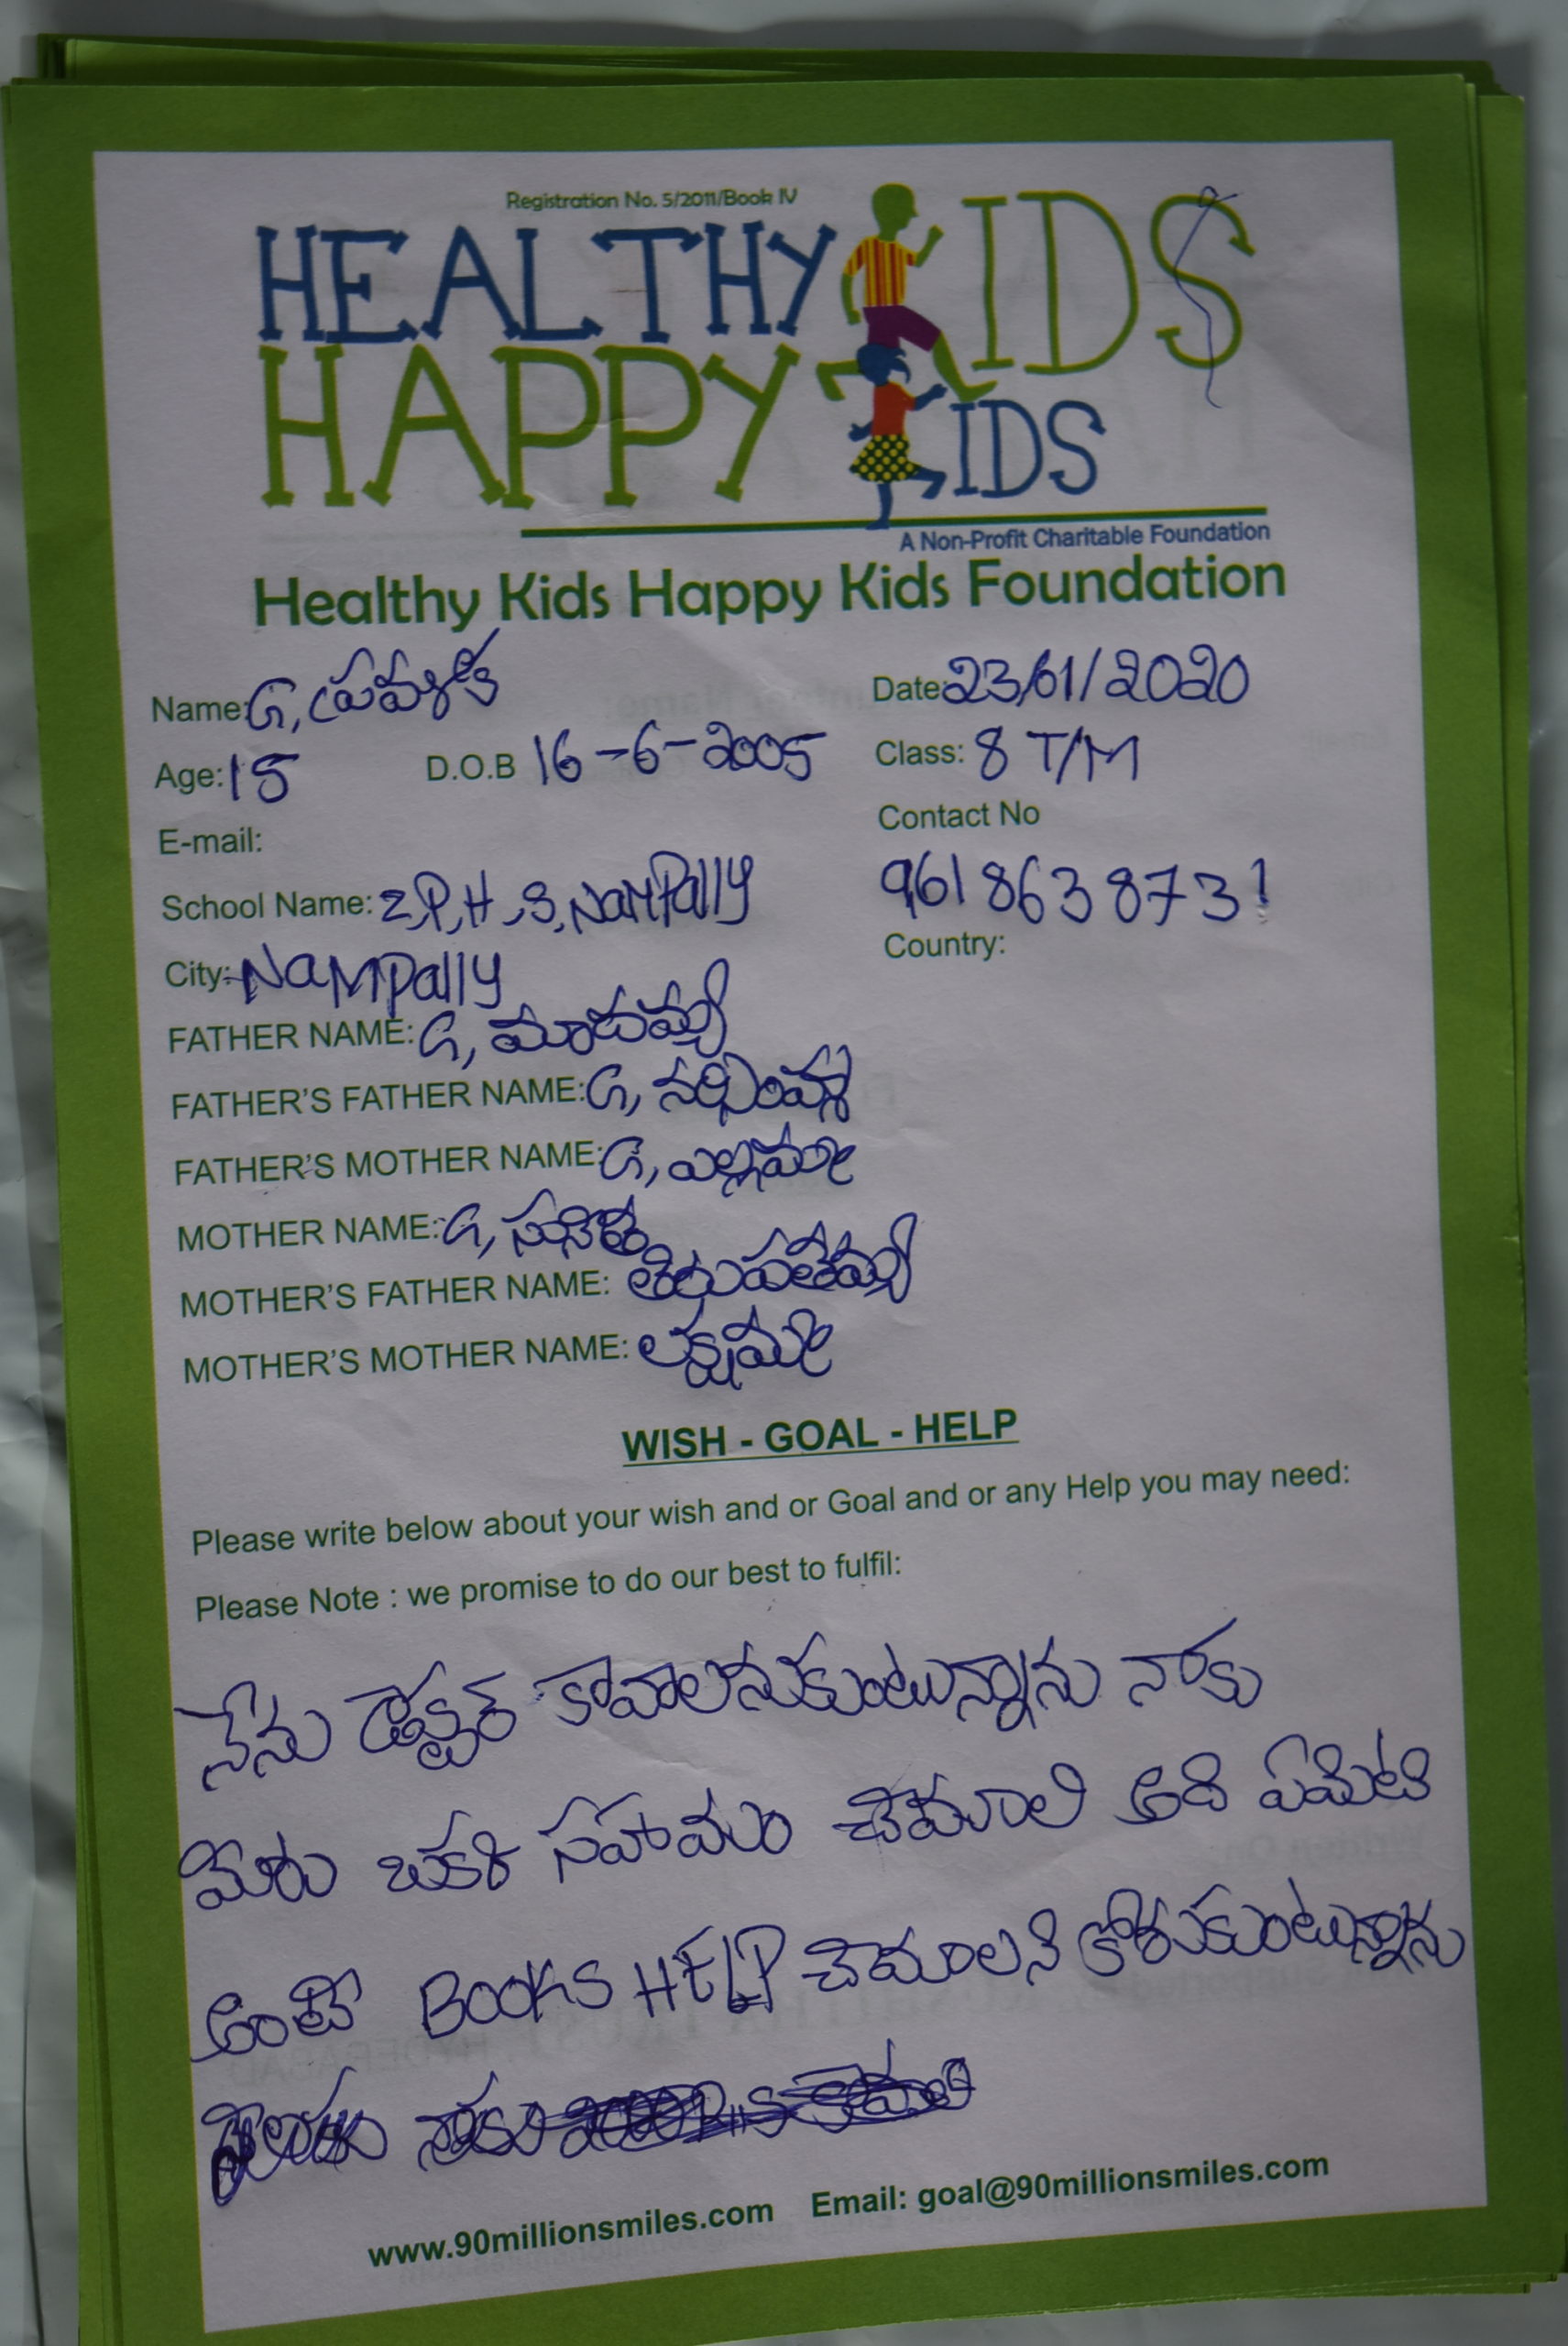 Registration No. 5/2011/Book IV
HEALTHY KIDS
HAPPY KIDS
A Non-Profit Charitable Foundation
Healthy Kids Happy Kids Foundation
Name: G, Date: 23/01/2020
Age: 15 D.O.B 16-6-2005 Class: 8 T/M
E-mail: Contact No
School Name: Z,P,H,S, NaMPally 9618638731
City: NaMPally Country:
FATHER NAME: G,
FATHER'S FATHER NAME: G,
FATHER'S MOTHER NAME: G, ఎల్లమ్మ
MOTHER NAME: G, సునిత
MOTHER'S FATHER NAME: తిరుపతమ్య
MOTHER'S MOTHER NAME: లక్ష్మమ్మ
WISH - GOAL - HELP
Please write below about your wish and or Goal and or any Help you may need:
Please Note : we promise to do our best to fulfil:
నేను డాక్టర్ కావాలనుకుంటున్నాను నాకు
మీరు ఒకటి సహాయం చేయాలి అది ఏమిటి
అంటే BOOKS HELP చేయాలని కోరుకుంటున్నాను
నాకు
www.90millionsmiles.com Email: goal@90millionsmiles.com